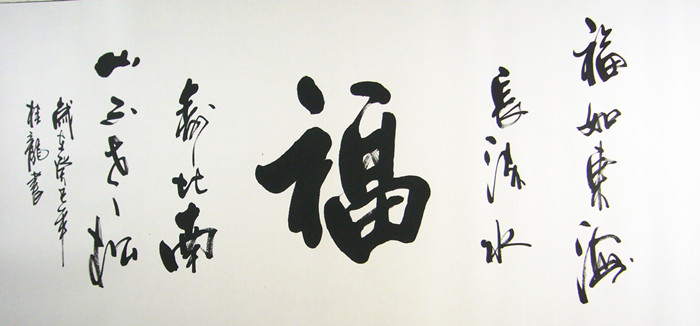 福如東海
長流水
福
寿比南
山不老松
歲在癸巳年
桂龍書